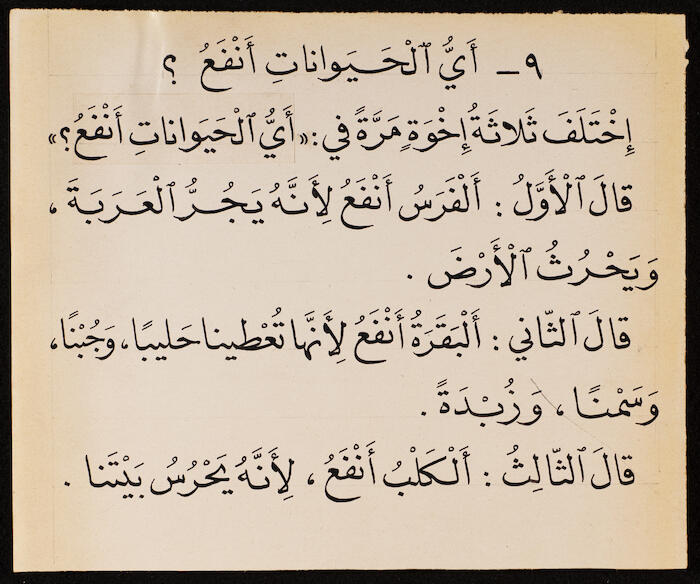 ٩ــ أَيُّ ٱلْحَـيَـوَاناتِ أَنْفَعُ ؟
إِخْتَلَفَ ثَلاثَةُ إِخْوَةٍ مَرَّةً في: «أَيُّ ٱلْحَيَواناتِ أَنْفَعُ؟»
قالَ ٱلْأَوَّلُ : أَلْفَرَسُ أَنْفَعُ لِأَنَّهُ يَجُـرُّ ٱلْعَرَبَةَ ،
وَيَحْرُثُ ٱلْأَرْضَ .
قالَ ٱلثّاني : أَلْبَقَرَةُ أَنْفَعُ لِأَنَّها تُعْطينا حَليبًا، وَجُبْنًا،
وَسَمْنًا ، وَزُبْدَةً .
قالَ ٱلثّالِثُ : أَلْكَلْبُ أَنْفَعُ ، لِأَنَّهُ يَحْرُسُ بَيْتَنا .